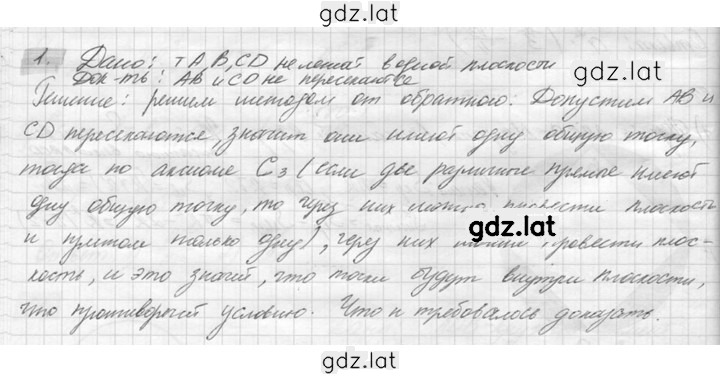 gdz.lat
1. Дано: т A, B, CD не лежат в одной плоскости
Док-ть: AB и CD не пересекаются
Решение: решаем методом от обратного. Допустим AB и
CD пересекаются, значит они имеют одну общую точку,
тогда по аксиоме C₃ (если две различные прямые имеют
одну общую точку, то через них можно провести плоскость
gdz.lat
и притом только одну), через них можно провести плос-
кость, и это значит, что точки будут внутри плоскости,
что противоречит условию. Что и требовалось доказать.
gdz.lat